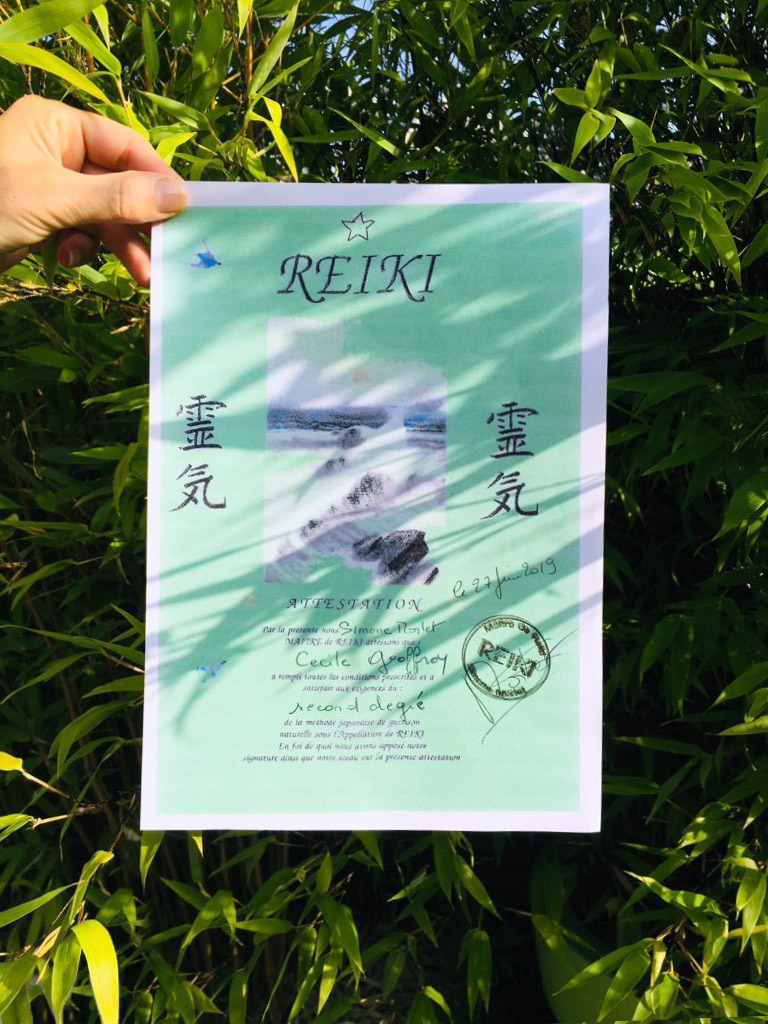 REIKI
霊
気
霊
気
le 27 juin 2019
ATTESTATION
Par la presente nous Simone Morlet
MAITRE de REIKI attestons que
Cecile Groffroy
a rempli toutes les conditions prescrites et a
satisfait aux exigences du :
second degré
de la methode japonaise de guerison
naturelle sous l'Appellation de REIKI
En foi de quoi nous avons apposé notre
signature ainsi que notre sceau sur la presense attestation
Maitre de Reiki
REIKI
Simone